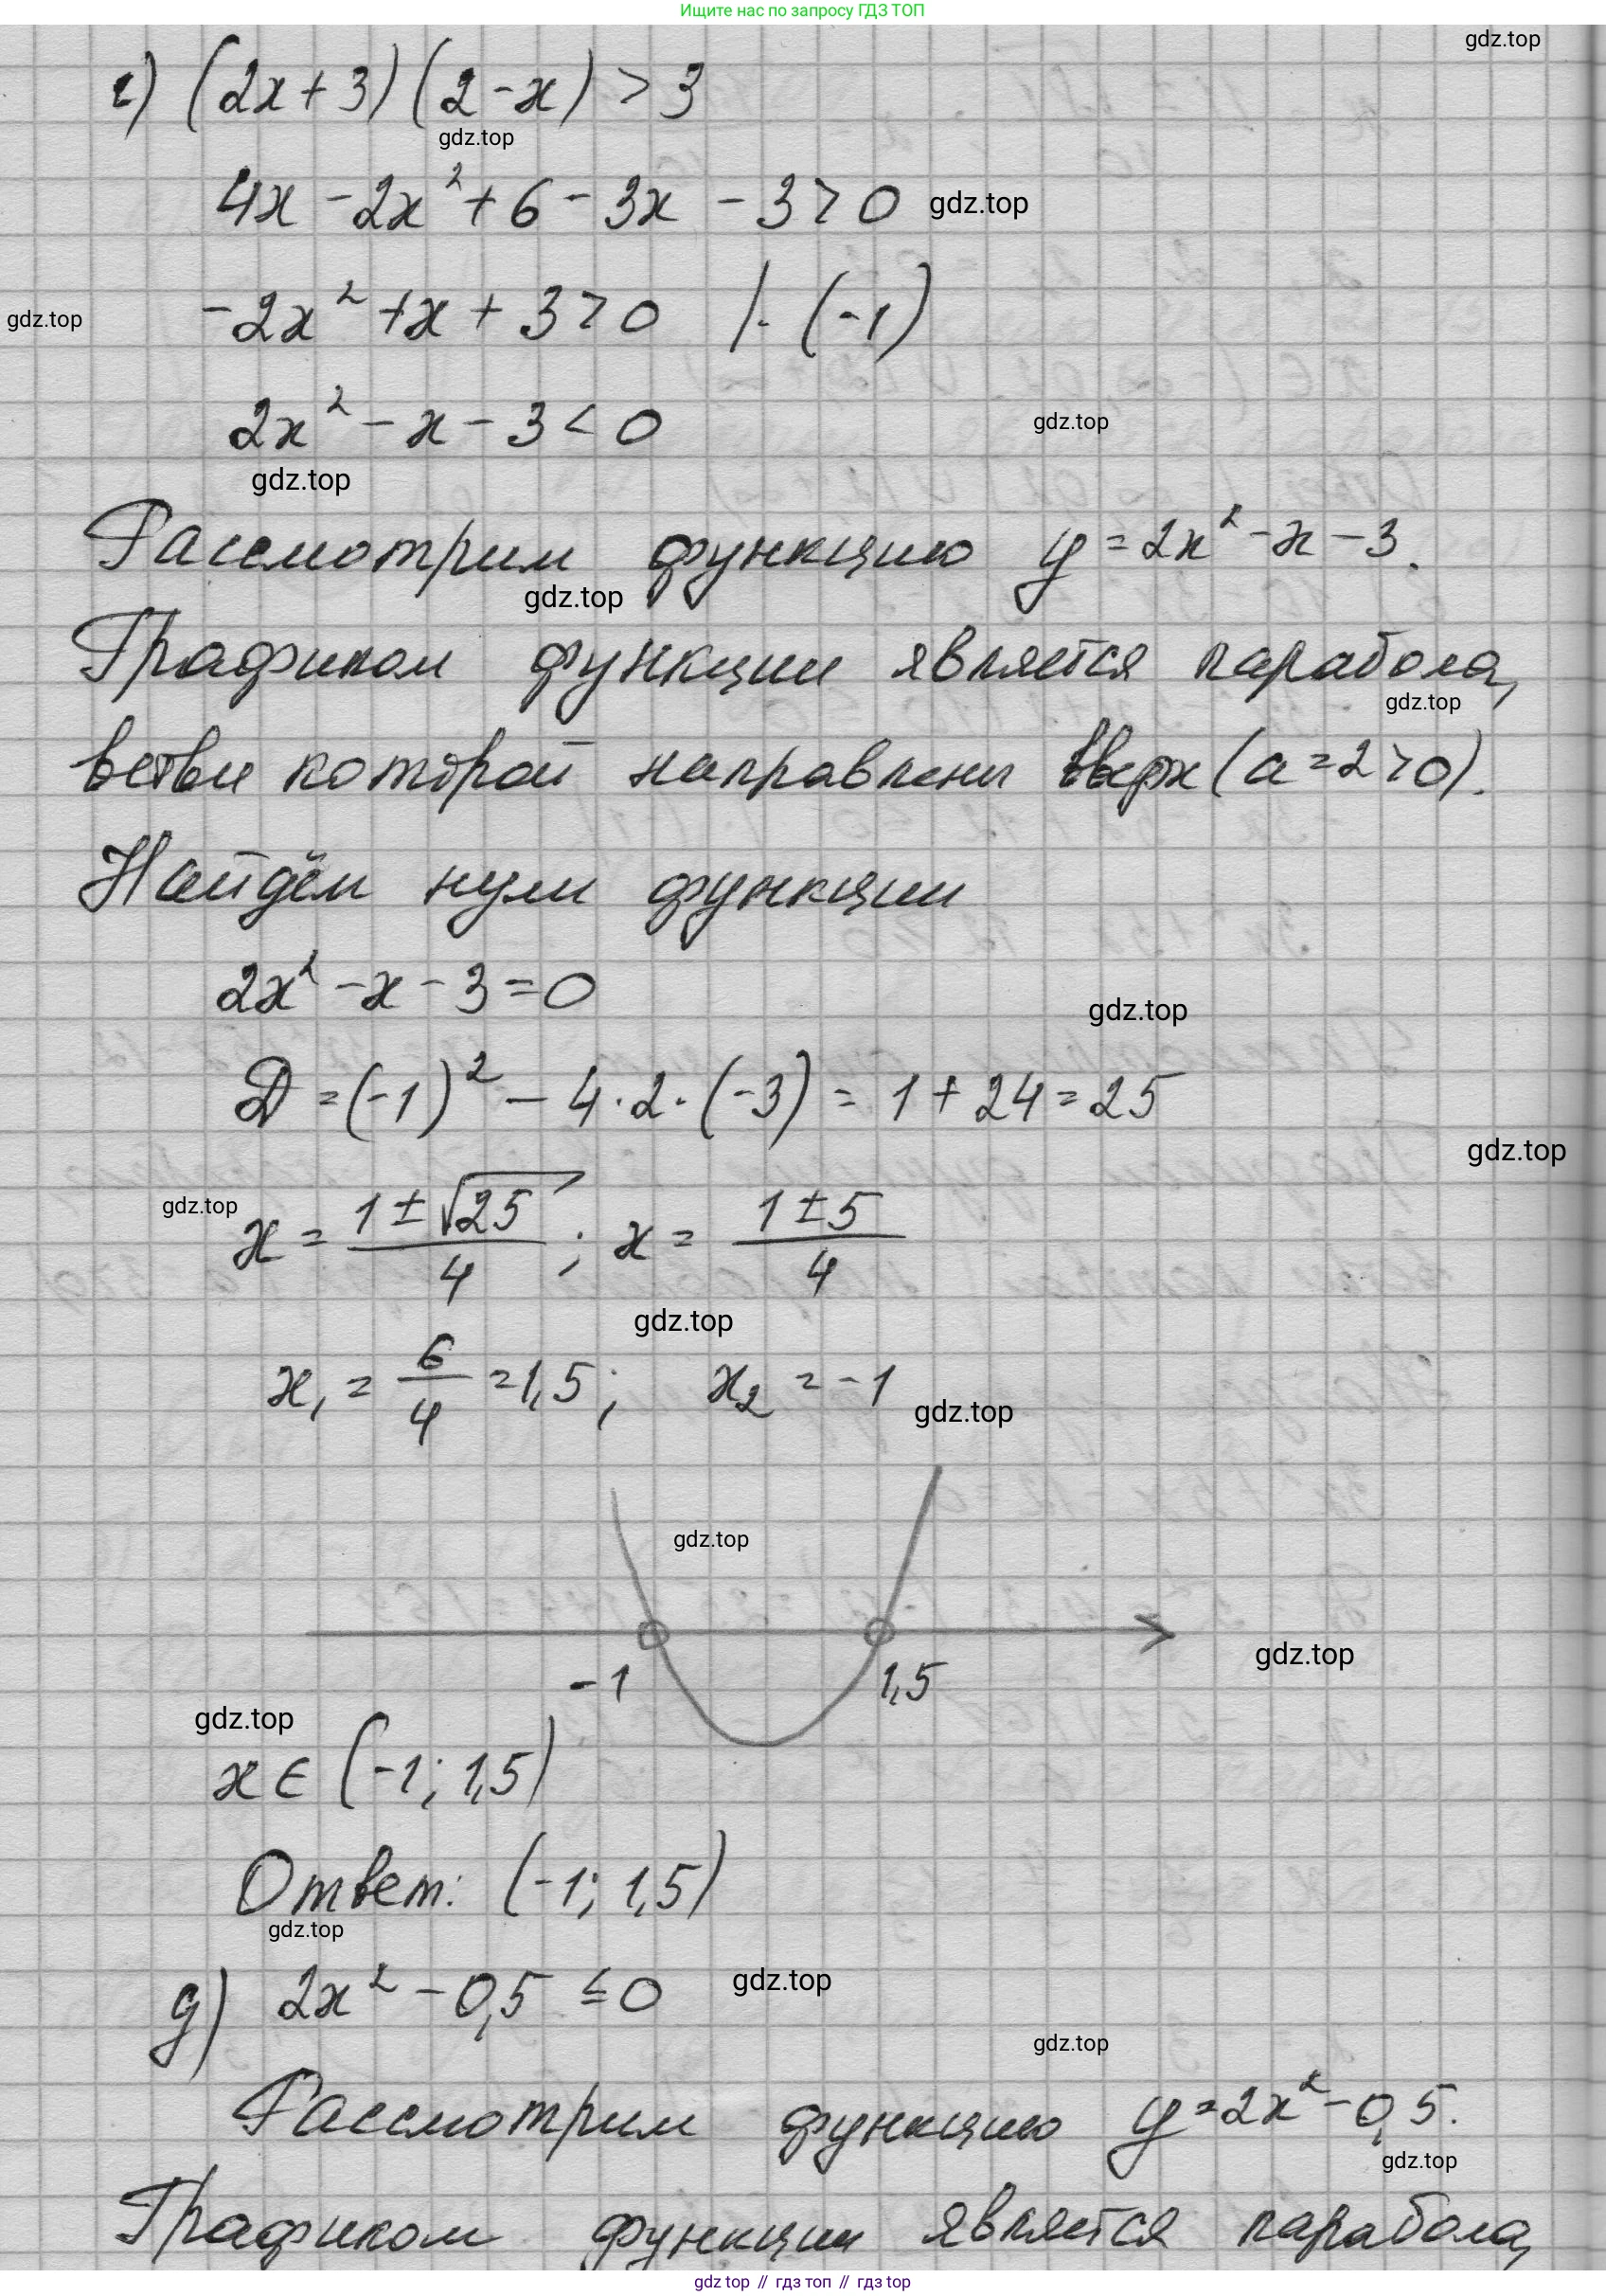 Ищите нас по запросу ГДЗ ТОП
gdz.top
г) (2x+3)(2-x) > 3
gdz.top
4x - 2x² + 6 - 3x - 3 > 0 gdz.top
gdz.top -2x² + x + 3 > 0 | · (-1)
2x² - x - 3 < 0 gdz.top
gdz.top
Рассмотрим функцию y = 2x² - x - 3.
gdz.top
Графиком функции является парабола,
gdz.top
ветви которой направлены вверх (a = 2 > 0).
Найдём нули функции
2x² - x - 3 = 0
gdz.top
D = (-1)² - 4 · 2 · (-3) = 1 + 24 = 25
gdz.top
gdz.top x = (1 ± √25)/4 ; x = (1 ± 5)/4
gdz.top
x₁ = 6/4 = 1,5 ; x₂ = -1 gdz.top
gdz.top
-1 1,5 gdz.top
gdz.top
x ∈ (-1; 1,5)
Ответ: (-1; 1,5)
gdz.top
д) 2x² - 0,5 ≤ 0 gdz.top
gdz.top
Рассмотрим функцию y = 2x² - 0,5.
gdz.top
Графиком функции является парабола,
gdz top // гдз топ // гдз top